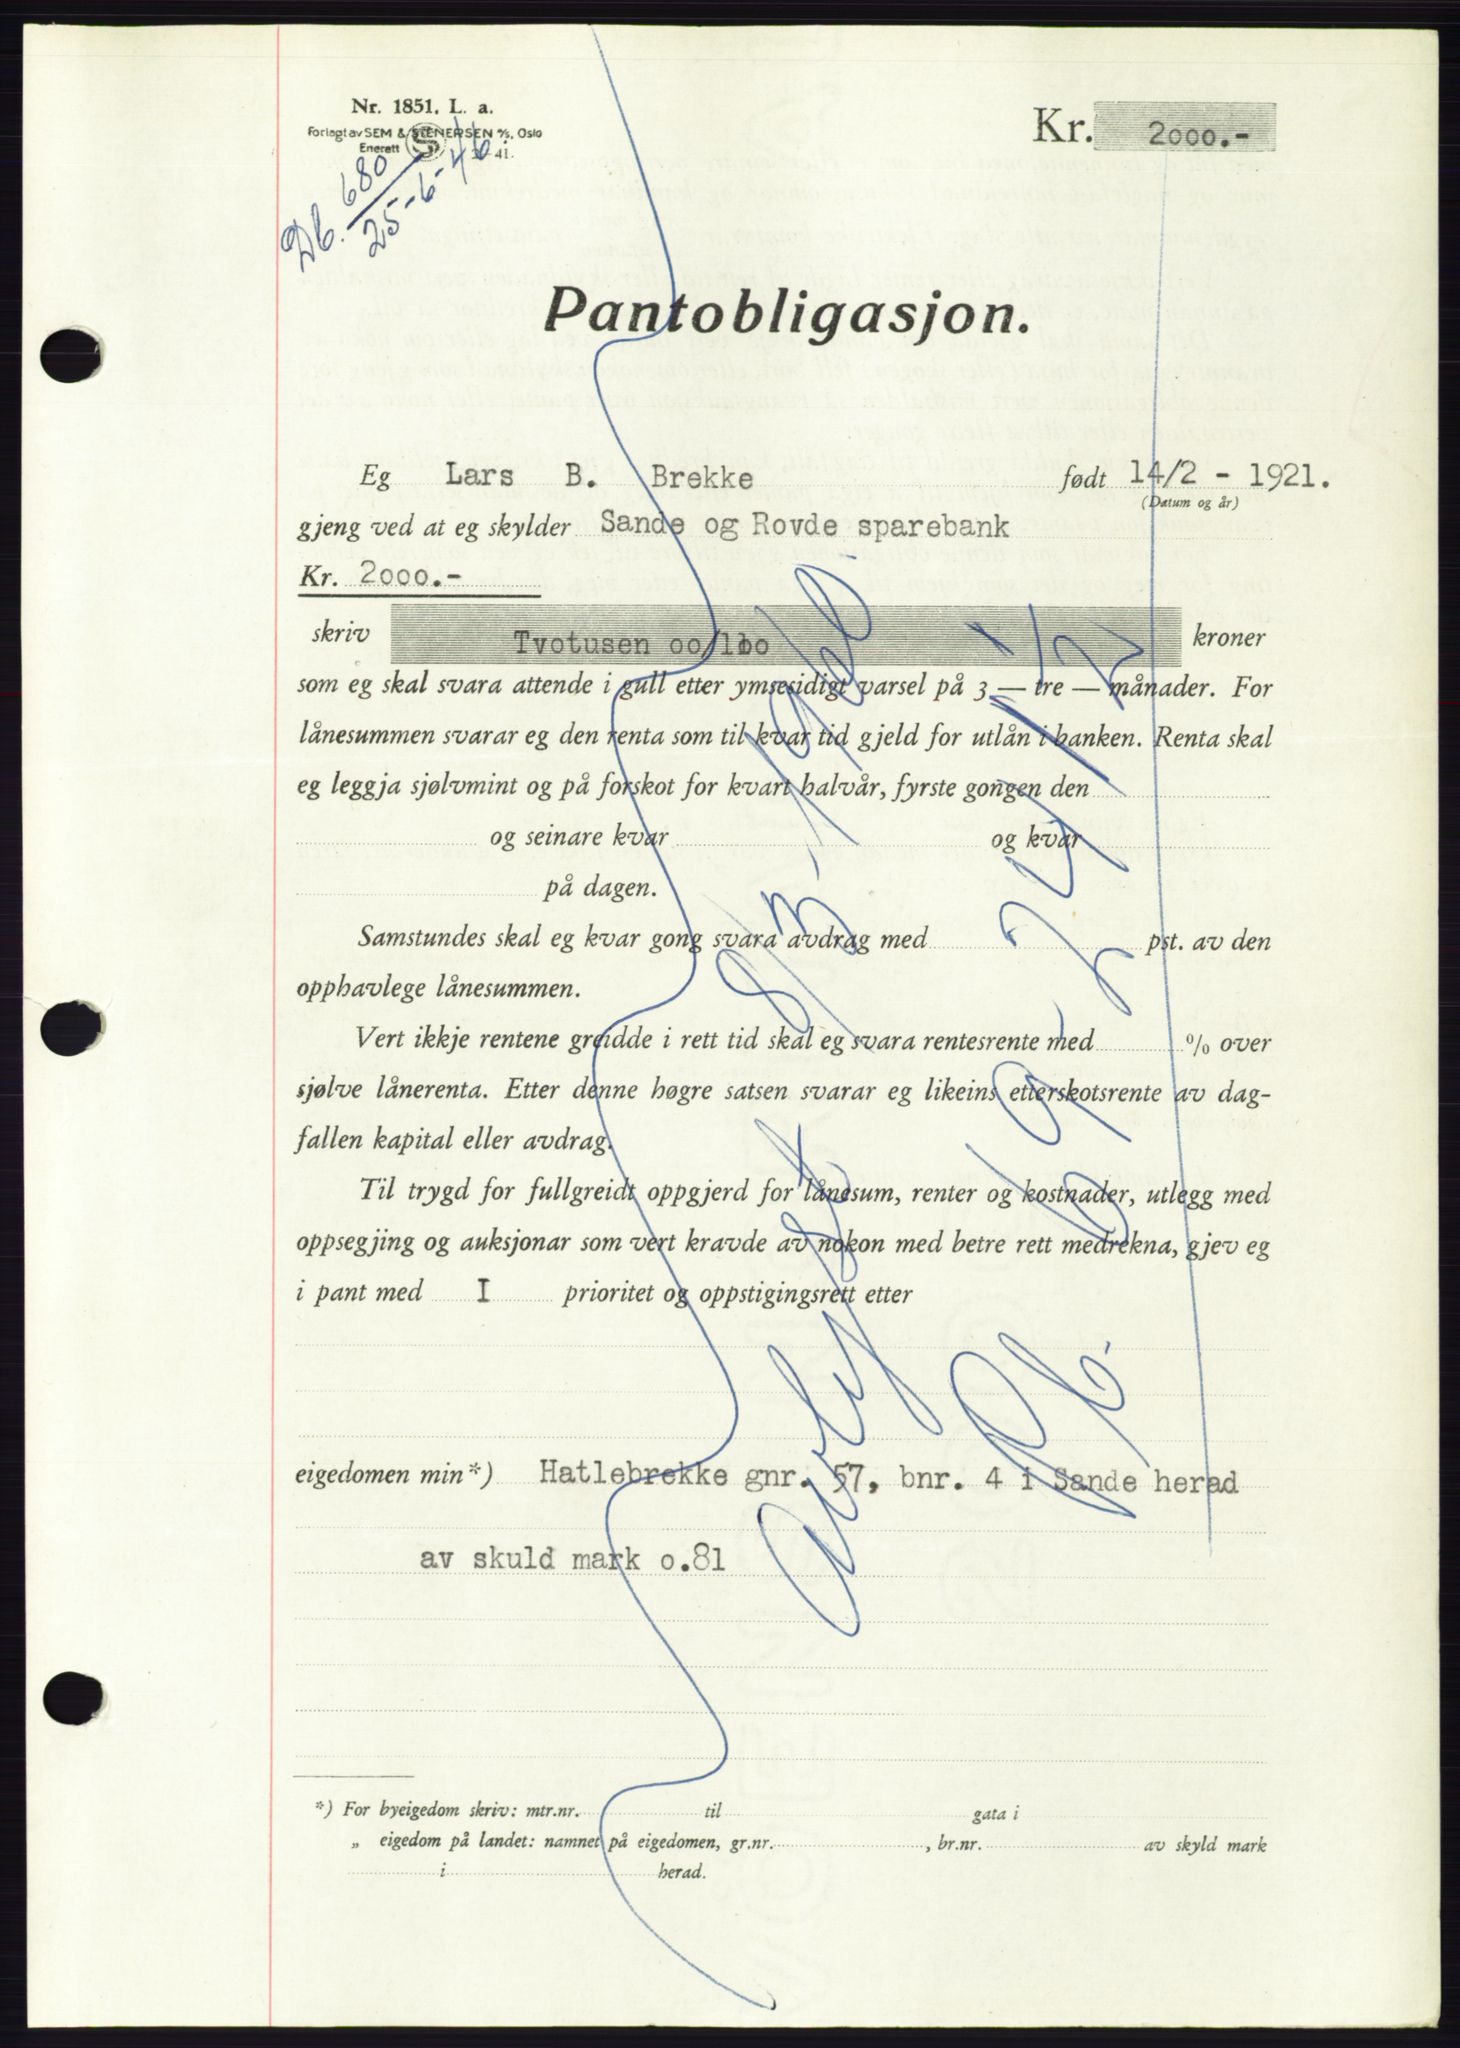 Nr. 1851. L. a.
Forlagt av SEM & STENERSEN A/S, Oslo
Enerett 41.
Db. 680
25-6-46
Kr. 2000.-
Pantobligasjon.
Eg Lars B. Brekke født 14/2 - 1921.
(Datum og år)
gjeng ved at eg skylder Sande og Rovde sparebank
Kr. 2000.-
skriv Tvotusen oo/loo kroner
som eg skal svara attende i gull etter ymsesidigt varsel på 3 — tre — månader. For
lånesummen svarar eg den renta som til kvar tid gjeld for utlån i banken. Renta skal
eg leggja sjølvmint og på forskot for kvart halvår, fyrste gongen den
og seinare kvar og kvar
på dagen.
Samstundes skal eg kvar gong svara avdrag med pst. av den
opphavlege lånesummen.
Vert ikkje rentene greidde i rett tid skal eg svara rentesrente med % over
sjølve lånerenta. Etter denne høgre satsen svarar eg likeins etterskotsrente av dag-
fallen kapital eller avdrag.
Til trygd for fullgreidt oppgjerd for lånesum, renter og kostnader, utlegg med
oppsegjing og auksjonar som vert kravde av nokon med betre rett medrekna, gjev eg
i pant med I prioritet og oppstigingsrett etter
eigedomen min*) Hatlebrekke gnr. 57, bnr. 4 i Sande herad
av skuld mark o.81
avlyst 8/3-1960.
*) For byeigedom skriv: mtr.nr. til gata i
„ eigedom på landet: namnet på eigedomen, gr.nr. , br.nr. av skyld mark
i herad.